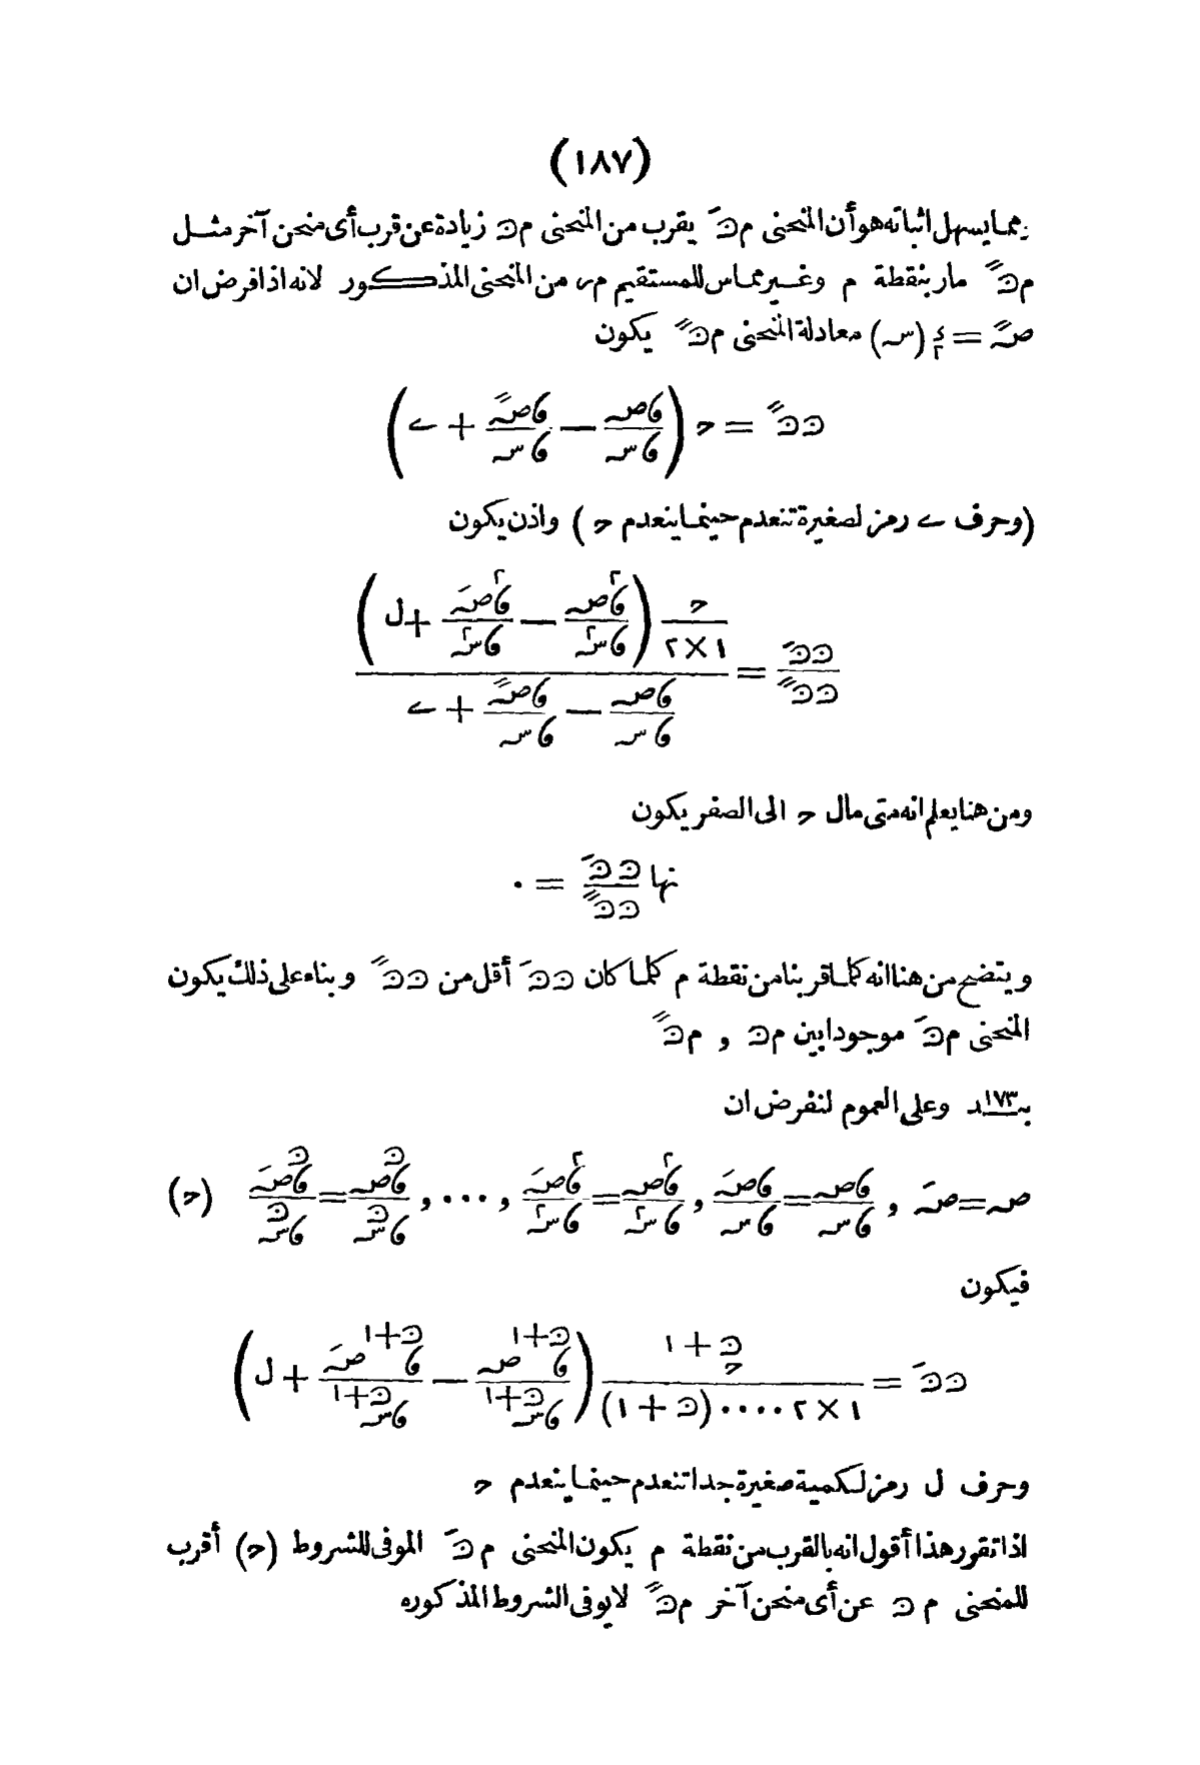 (١٨٧)
ومما يسهل اثباته هو أن المنحنى م ںَ يقرب من المنحنى م ں زيادة عن قرب أى منحن آخر مثـل
م ںً مار بنقطة م وغـير مماس للمستقيم م ر من المنحنى المذكـور لانه اذا فرض ان
صًـ = ﮐ٢ (سـ) معادلة المنحنى م ںً يكون
ںںً = ح (ﮐصـ/ﮐسـ − ﮐصًـ/ﮐسـ + ے)
(وحرف ے رمز لصغيرة تنعدم حينمـا ينعدم ح ) واذن يكون
ںںَ/ںںً = ح/١×٢ (ﮐ٢صـ/ﮐسـ٢ − ﮐ٢صَـ/ﮐسـ٢ + ل) / (ﮐصـ/ﮐسـ − ﮐصًـ/ﮐسـ + ے)
ومن هنا يعلم انه متى مال ح الى الصفر يكون
نها ںںَ/ںںً = ٠
ويتضح من هنا انه كلمـا قربنا من نقطة م كلمـا كان ںںَ أقل من ںںً وبناء على ذلك يكون
المنحنى م ںَ موجودا بين م ں و م ںً
بـ١٧٣ـند وعلى العموم لنفرض ان
صـ = صَـ , ﮐصـ/ﮐسـ = ﮐصَـ/ﮐسـ , ﮐ٢صـ/ﮐسـ٢ = ﮐ٢صَـ/ﮐسـ٢ , ٠٠٠ , ﮐںصـ/ﮐسـں = ﮐںصَـ/ﮐسـں (ح)
فيكون
ںںَ = حں+١/١×٢٠٠٠٠(ں+١) (ﮐں+١صـ/ﮐسـں+١ − ﮐں+١صَـ/ﮐسـں+١ + ل)
وحرف ل رمز لكمية صغيرة جدا تنعدم حينمـا ينعدم ح
اذا تقرر هذا أقول انه بالقرب من نقطة م يكون المنحنى م ںَ الموفى للشروط (ح) أقرب
للمنحنى م ں عن أى منحن آخر م ںً لا يوفى الشروط المذكوره